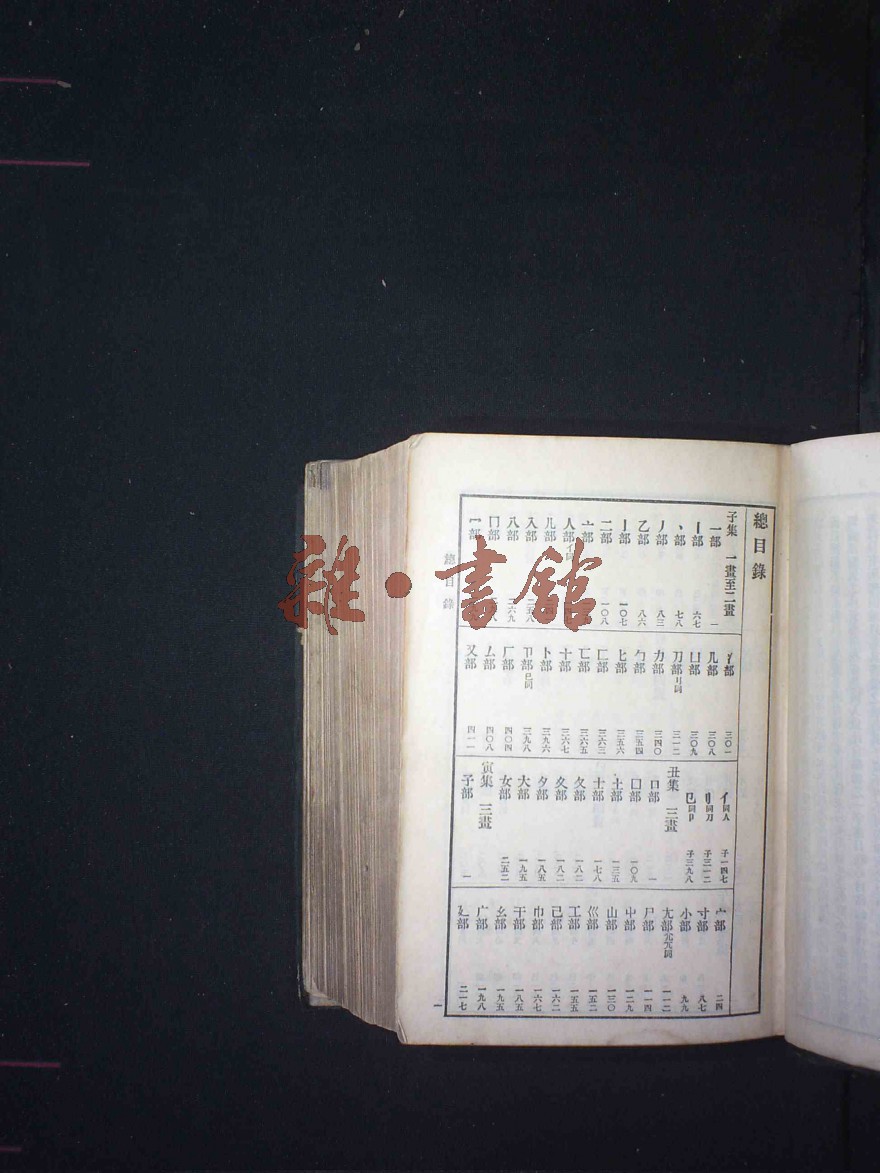 總目錄
子集 一畫至二畫
一部 一
丨部 六七
丶部 七八
丿部 八三
乙部 八六
亅部 一〇七
二部 一〇八
亠部
人部亻同
儿部
入部 二五八
八部 二六九
冂部
冖部
冫部 三〇一
几部 三〇八
凵部 三〇九
刀部刂同 三一二
力部 三四〇
勹部 三五四
匕部 三五六
匚部 三六三
匸部 三六五
十部 三六七
卜部 三九六
卩部㔾同 三九八
厂部 四〇四
厶部 四〇八
又部 四一一
亻同人 子一四七
刂同刀 子三一二
㔾同卩 子三九八
丑集 三畫
口部 一
囗部 一〇九
土部 一三五
士部 一七八
夂部 一八二
夊部 一八二
夕部 一八五
大部 一九五
女部 二五二
寅集 三畫
子部 一
宀部 二四
寸部 八七
小部 九九
尢部兀同 一一二
尸部 一一四
屮部 一二九
山部 一三〇
巛部 一五二
工部 一五五
己部 一六二
巾部 一六七
干部 一八五
幺部 一九五
广部 一九八
廴部 二一七
總目錄
一
雜·書館